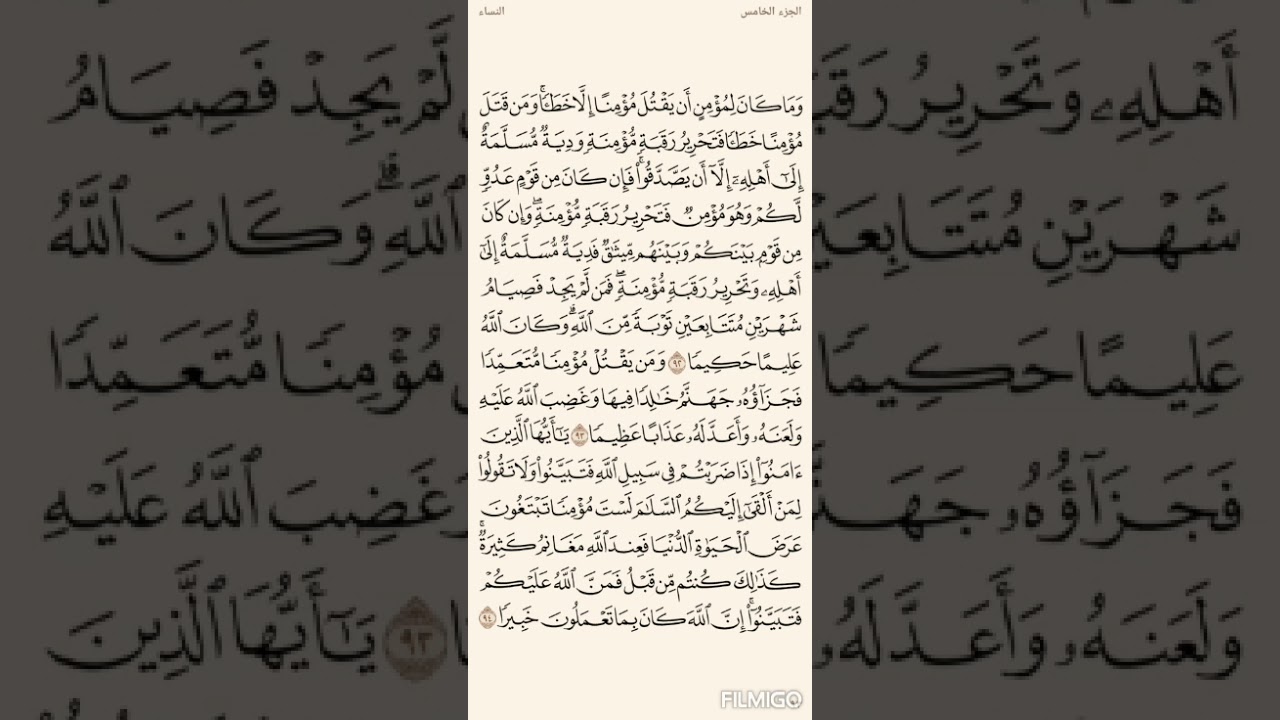 الجزء الخامس
النساء
وَمَا كَانَ لِمُؤْمِنٍ أَن يَقْتُلَ مُؤْمِنًا إِلَّا خَطَـًٔاۚ وَمَن قَتَلَ
مُؤْمِنًا خَطَـًٔا فَتَحْرِيرُ رَقَبَةٍ مُّؤْمِنَةٍ وَدِيَةٌ مُّسَلَّمَةٌ
إِلَىٰٓ أَهْلِهِۦٓ إِلَّآ أَن يَصَّدَّقُوا۟ۚ فَإِن كَانَ مِن قَوْمٍ عَدُوٍّ
لَّكُمْ وَهُوَ مُؤْمِنٌ فَتَحْرِيرُ رَقَبَةٍ مُّؤْمِنَةٍۖ وَإِن كَانَ
مِن قَوْمٍۭ بَيْنَكُمْ وَبَيْنَهُم مِّيثَـٰقٌ فَدِيَةٌ مُّسَلَّمَةٌ إِلَىٰٓ
أَهْلِهِۦ وَتَحْرِيرُ رَقَبَةٍ مُّؤْمِنَةٍۖ فَمَن لَّمْ يَجِدْ فَصِيَامُ
شَهْرَيْنِ مُتَتَابِعَيْنِ تَوْبَةً مِّنَ ٱللَّهِۗ وَكَانَ ٱللَّهُ
عَلِيمًا حَكِيمًا ٩٢ وَمَن يَقْتُلْ مُؤْمِنًا مُّتَعَمِّدًا
فَجَزَآؤُهُۥ جَهَنَّمُ خَـٰلِدًا فِيهَا وَغَضِبَ ٱللَّهُ عَلَيْهِ
وَلَعَنَهُۥ وَأَعَدَّ لَهُۥ عَذَابًا عَظِيمًا ٩٣ يَـٰٓأَيُّهَا ٱلَّذِينَ
ءَامَنُوٓا۟ إِذَا ضَرَبْتُمْ فِى سَبِيلِ ٱللَّهِ فَتَبَيَّنُوا۟ وَلَا تَقُولُوا۟
لِمَنْ أَلْقَىٰٓ إِلَيْكُمُ ٱلسَّلَـٰمَ لَسْتَ مُؤْمِنًا تَبْتَغُونَ
عَرَضَ ٱلْحَيَوٰةِ ٱلدُّنْيَا فَعِندَ ٱللَّهِ مَغَانِمُ كَثِيرَةٌۚ
كَذَٰلِكَ كُنتُم مِّن قَبْلُ فَمَنَّ ٱللَّهُ عَلَيْكُمْ
فَتَبَيَّنُوٓا۟ۚ إِنَّ ٱللَّهَ كَانَ بِمَا تَعْمَلُونَ خَبِيرًا ٩٤
FILMIGO